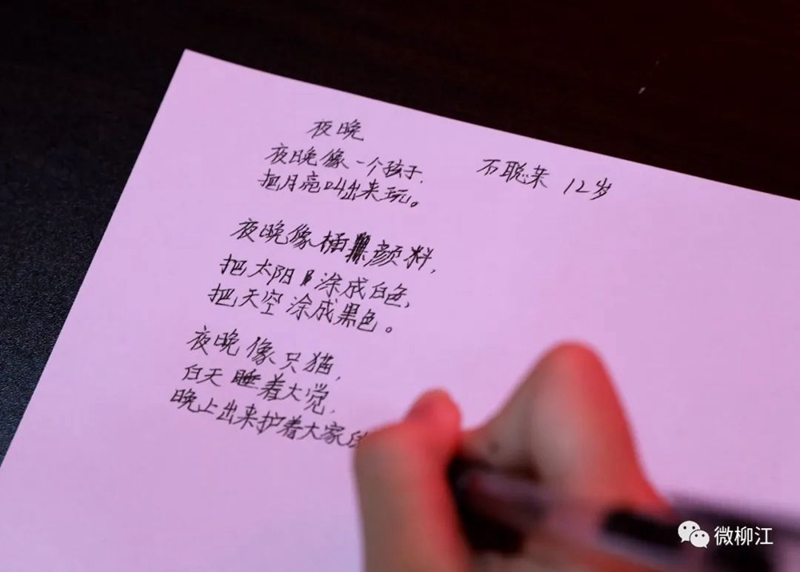 夜晚
石聪来 12岁
夜晚像一个孩子,
把月亮叫出来玩。
夜晚像桶颜料,
把太阳涂成白色,
把天空涂成黑色。
夜晚像只猫,
白天睡着大觉,
晚上出来护着大家
微柳江